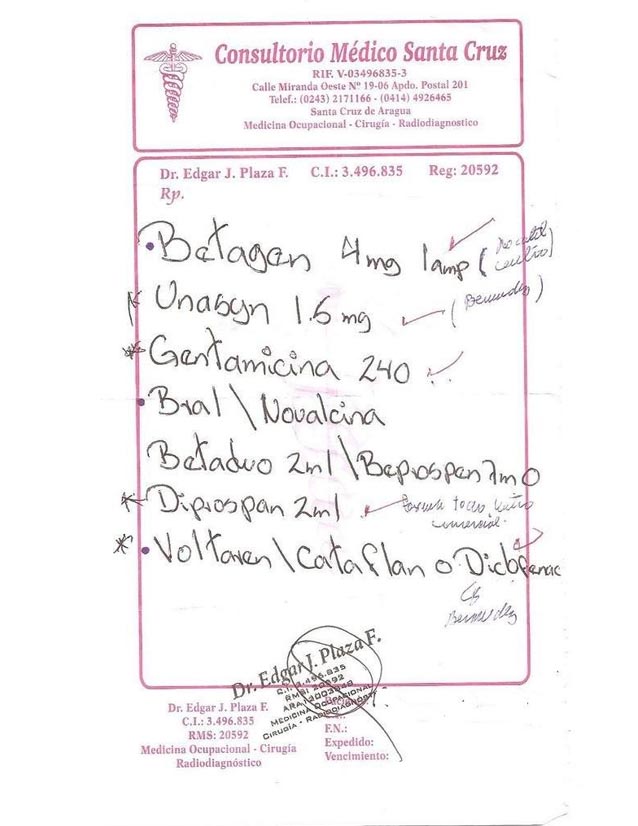 Consultorio Médico Santa Cruz
RIF. V-03496835-3
Calle Miranda Oeste Nº 19-06 Apdo. Postal 201
Telef.: (0243) 2171166 - (0414) 4926465
Santa Cruz de Aragua
Medicina Ocupacional - Cirugía - Radiodiagnostico
Dr. Edgar J. Plaza F. C.I.: 3.496.835 Reg: 20592
Rp.
Betagen 4mg 1amp
Unasyn 1.5 mg (Bermudez)
Gentamicina 240
Bral \ Novalcina
Betaduo 2ml \ Beprospen 7mo
Diprospan 2ml
comercial.
Voltaren \ Cataflan o Diclofenac
Bermudez
Dr. Edgar J. Plaza F.
C.I. 3.496.835
RMS: 20592
MEDICINA OCUPACIONAL
CIRUGÍA - RADIODIAGNOST
Dr. Edgar J. Plaza F.
C.I.: 3.496.835
RMS: 20592
Medicina Ocupacional - Cirugía
Radiodiagnóstico
F.N.:
Expedido:
Vencimiento: